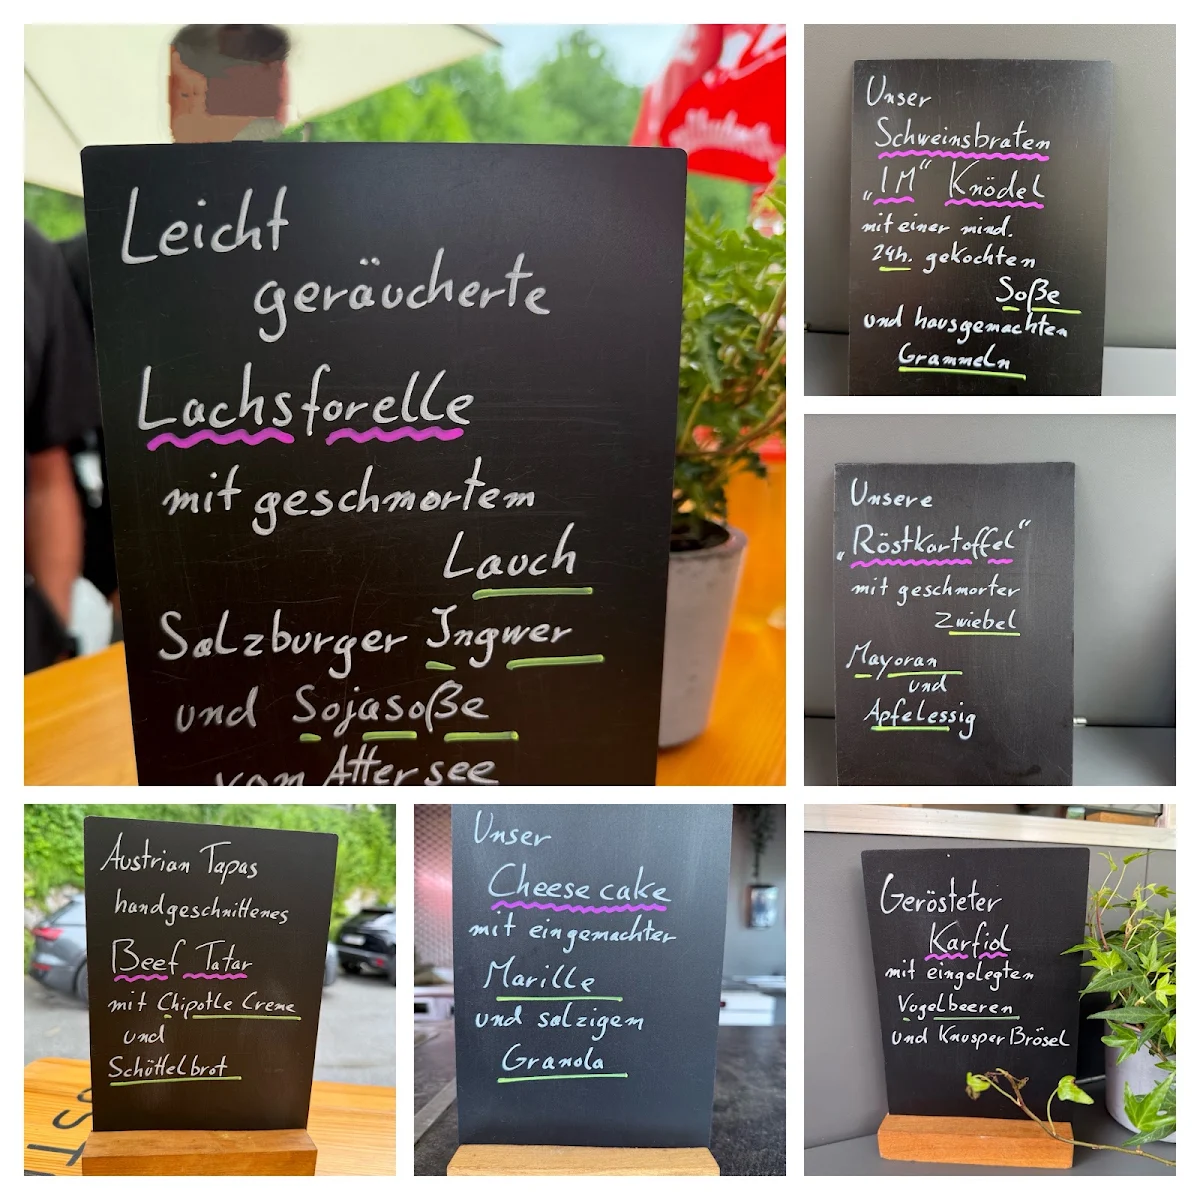 Leicht
geräucherte
Lachsforelle
mit geschmortem
Lauch
Salzburger Ingwer
und Sojasoße
vom Attersee
Unser
Schweinsbraten
„IM“ Knödel
mit einer mind.
24h. gekochten
Soße
und hausgemachten
Grammeln
Unsere
„Röstkartoffel“
mit geschmorter
Zwiebel
Mayoran
und
Apfelessig
Austrian Tapas
handgeschnittenes
Beef Tatar
mit Chipotle Creme
und
Schüttelbrot
Unser
Cheese cake
mit eingemachter
Marille
und salzigem
Granola
Gerösteter
Karfiol
mit eingelegten
Vogelbeeren
und Knusper Brösel